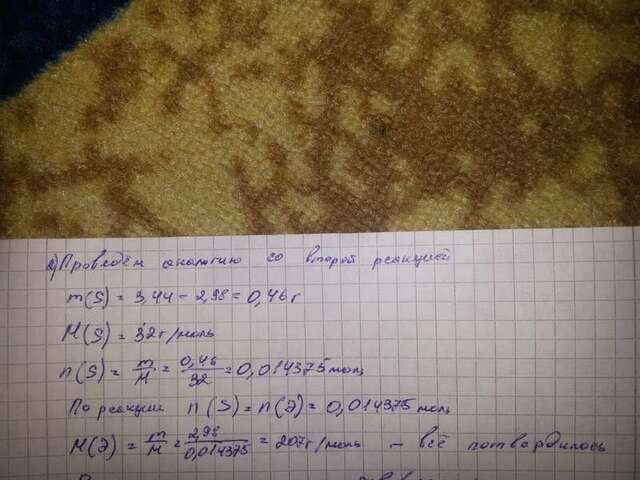 2) Проведём аналогию со второй реакцией
m(S) = 3,44 - 2,98 = 0,46 г
M(S) = 32 г/моль
n(S) = m/M = 0,46/32 = 0,014375 моль
По реакции n(S) = n(Э) = 0,014375 моль
M(Э) = m/M = 2,98/0,014375 = 207 г/моль – всё потвардилось